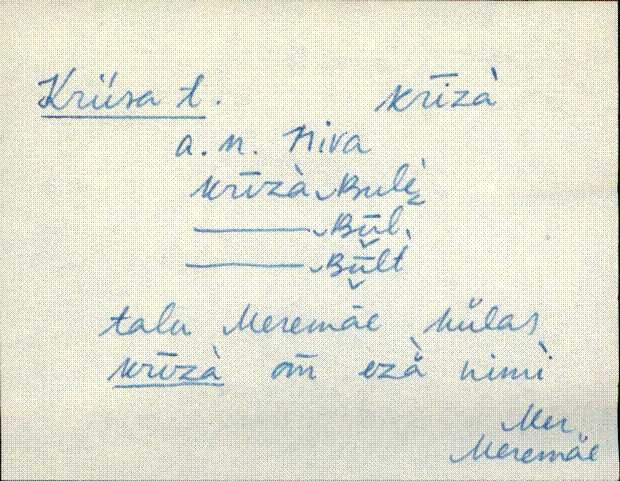 Kriisa t. krīzà
a. n. Niva
krīzà‿Bulè̬
———‿Bū̬l,
———‿Bū̬lt
talu Meremäe külas
krīzà om̄ ezà nimì
Mer
Meremäe